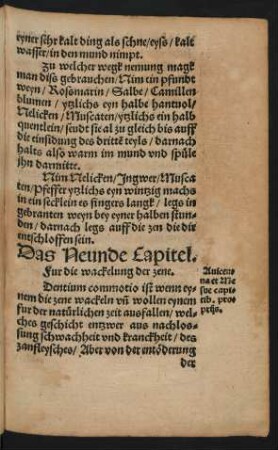 eyner sehr kalt ding als schne/eyß/kalt
wasser/in den mund nimpt.
Zu welcher wegk nemung magk
man diß gebrauchen/Nim ein pfundt
weyn/Roßmarin/Salbe/Camillen
blumen/ytzlichs eyn halbe hantuol/
Nelicken/Muscaten/ytzlichs ein halb
quentlein/seudt sie al zu gleich bis auff
die einsidung des dritte teyls/darnach
halts also warm im mund vnd spüle
jhn darmitte.
Nim Nelicken/Ingwer/Musca
ten/Pfeffer ytzlichs eyn wintzig machs
in ein secklein es fingers langk/legs in
gebranten weyn bey eyner halben stun
den/darnach legs auff die zen die dir
entschloffen sein.
Das Neunde Capitel.
Fur die wackelung der zene.
Auicen
na et Me
sue capi
teb. pro
prijs.
Dentium commotio ist wenn ey-
nem die zene wackeln vñ wollen eynem
fur der natürlichen zeit ausfallen/wel-
ches geschicht entzwer aus nachlos-
sung schwachheit vnd kranckheit/des
zanfleysches/Aber von der entöderung
der